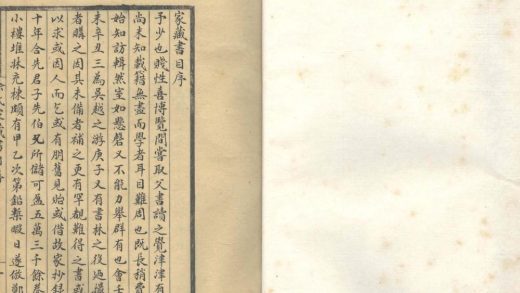 家藏書目序
予少也賤性喜博覽間嘗取父書讀之覺津津有
尚未知載籍無盡而學者耳目難周也既長稍費
始知訪輯然室如懸磬又不能力舉群有也會壬
未辛丑三為吳越之游庚子又有書林之役迺撮
者購之因其未備者補之更有罕覯難得之書或
以求或因人而乞或有朋舊見貽或借故家抄錄
十年合先君子先伯兄所儲可盈五萬三千餘卷
小樓堆牀充棟頗有甲乙次第鉛槧暇日遂倣鄭